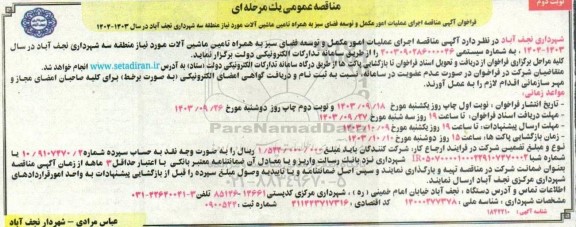 نوبت دوم
مناقصه عمومی یک مرحله ای
فراخوان آگهی مناقصه اجرای عملیات امور مکمل و توسعه فضای سبز به همراه تامین ماشین آلات مورد نیاز منطقه سه شهرداری نجف آباد در سال ۱۴۰۳-۱۴۰۲
شهرداری نجف آباد در نظر دارد آگهی مناقصه اجرای عملیات امور مکمل و توسعه فضای سبز به همراه تامین ماشین آلات مورد نیاز منطقه سه شهرداری نجف آباد در سال
۱۴۰۳-۱۴۰۲ ، به شماره سیستمی ۲۰۰۳۰۹۰۲۸۶۰۰۰۰۴۶ را از طریق سامانه تدارکات الکترونیکی دولت برگزار نماید.
کلیه مراحل برگزاری فراخوان از دریافت و تحویل اسناد فراخوان تا بازگشایی پاکت ها از طریق درگاه سامانه تدارکات الکترونیکی دولت (ستاد) به آدرس www.setadiran.ir انجام خواهد شد.
متقاضیان شرکت در فراخوان در صورت عدم عضویت در سامانه، نسبت به ثبت نام و دریافت گواهی امضای الکترونیکی (به صورت برخط) برای کلیه صاحبان امضای مجاز و
مهر سازمانی اقدام لازم را به عمل آورند.
مواعد زمانی:
- تاریخ انتشار فراخوان : نوبت اول چاپ روز یکشنبه مورخ ۱۴۰۳/۰۹/۱۸ و نوبت دوم چاپ روز دوشنبه مورخ ۱۴۰۳/۰۹/۲۶
- مهلت دریافت اسناد فراخوان : تا ساعت ۱۹ روز سه شنبه مورخ ۱۴۰۳/۰۹/۲۷
- مهلت ارسال پیشنهادات: تا ساعت ۱۹ روز یکشنبه مورخ
- زمان بازگشایی پاکت ها: ساعت ۱۵ روز دوشنبه مورخ ۱۴۰۳/۱۰/۱۰
نوع و مبلغ تضمین شرکت در فرایند ارجاع کار: شرکت کنندگان باید مبلغ ریال را به صورت وجه نقد به حساب سپرده شماره
شماره شبا شهرداری نزد بانک رسالت واریز و یا معادل آن ضمانتنامه معتبر بانکی با اعتبار حداقل ۳ ماهه از زمان آگهی مناقصه
بعنوان ضمانت شرکت در مناقصه تهیه و بارگذاری نمایند و سپس اصل ضمانتنامه و یا تاییدیه وصول مبلغ سپرده را قبل از بازگشایی پیشنهادات به واحد امور قراردادهای
شهرداری مرکزی نجف آباد ارسال نمایند.
اطلاعات تماس و آدرس دستگاه : نجف آباد خیابان امام خمینی (ره) ، شهرداری مرکزی کدپستی ۱۳۶۶۱-۸۵۱۴۶ تلفن ۳-۴۲۶۴۰۰۴۱-۰۳۱
مشخصات شهرداری : شناسه ملی : ۱۴۰۰۰۲۷۷۳۷۸ کد اقتصادی : ۴۱۱۴۴۳۷۱۷۳۱۶ شماره ثبت : ۰۹۰۰۵۲۲
شناسه آگهی : ۱۸۴۲۲۱۰
عباس مرادی - شهردار نجف آباد